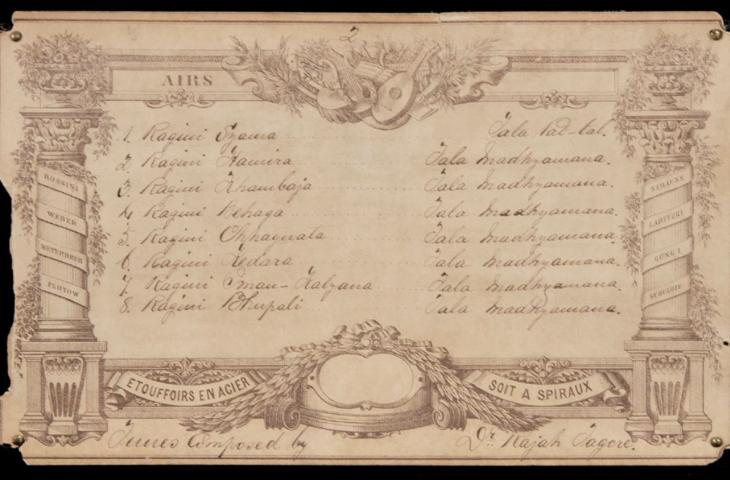 2
AIRS
1. Ragini Syama Tala Pat-tal.
2. Ragini Hamira Tala Madhyamana.
3. Ragini Khambaja Tala Madhyamana.
4 Ragini Behaga Tala Madhyamana.
5. Ragini Chhaynata Tala Madhyamana.
6 Ragini Kedara Tala Madhyamana.
7 Ragini Iman-Kalyana Tala Madhyamana.
8. Ragini Bhupali Tala Madhyamana.
ROSSINI
WEBER
MEYERBEER
FLOTOW
STRAUSS
LABITZKI
GUNG'L
ETOUFFOIRS EN ACIER
SOIT A SPIRAUX
Tunes Composed by Dr. Rajah Tagore.